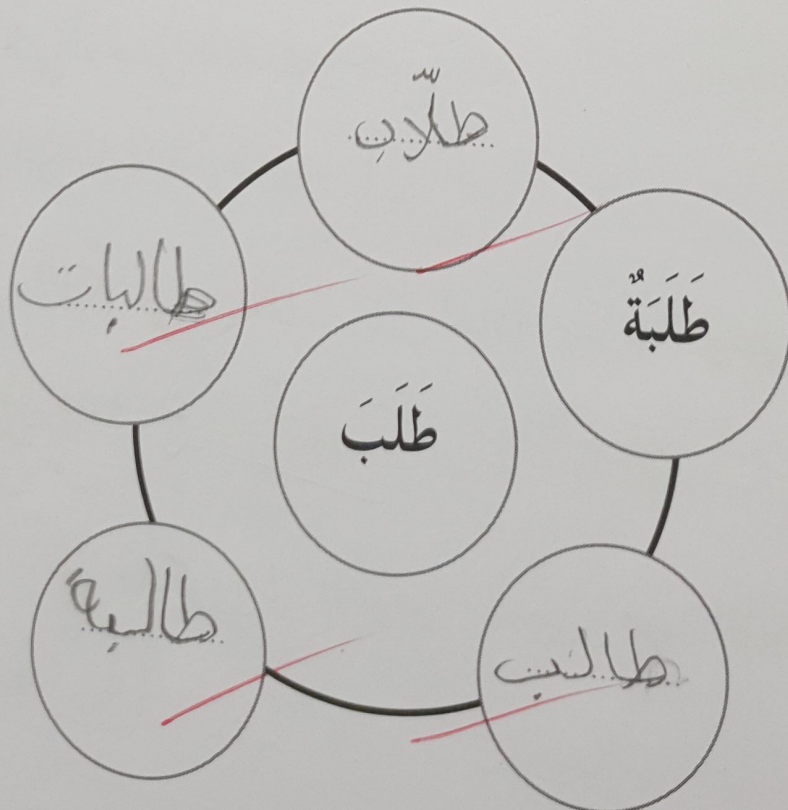 طلّاب
طَلَبَةٌ
طالبات
طَلَبَ
طالبة
طالب